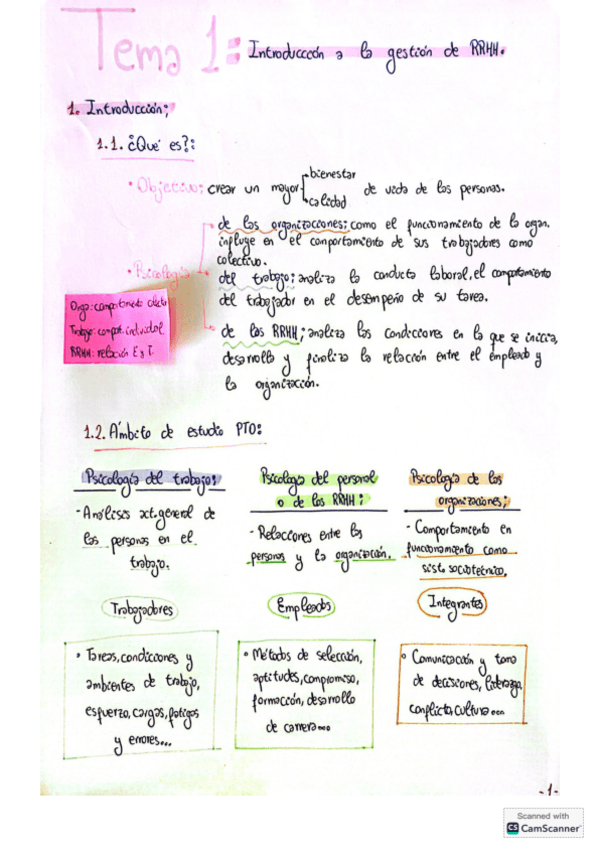 Tema 1: Introducción a la gestión de RRHH.
1. Introducción;
1.1. ¿Qué es?:
• Objetivo: crear un mayor bienestar
calidad
de vida de las personas.
• Psicología
de las organizaciones: como el funcionamiento de la organ.
influye en el comportamiento de sus trabajadores como
colectivo.
del trabajo: analiza la conducta laboral, el comportamiento
del trabajador en el desempeño de su tarea.
de las RRHH; analiza las condiciones en la que se inicia,
desarrolla y finaliza la relación entre el empleado y
la organización.
Orga: comportamiento colectiv
Trabajo: comport. individual
RRHH: relación E y T.
1.2. Ámbito de estudio PTO:
Psicología del trabajo:
- Análisis act. general de
las personas en el
trabajo.
Trabajadores
• Tareas, condiciones y
ambientes de trabajo,
esfuerzo, cargas, fatigas
y errores...
Psicología del personal
o de los RRHH:
- Relaciones entre las
personas y la organización.
Empleados
• Métodos de selección,
aptitudes, compromiso,
formación, desarrollo
de carrera...
Psicología de las
organizaciones;
- Comportamiento en
funcionamiento como
sist. sociotécnico.
Integrantes
• Comunicación y toma
de decisiones, liderazgo,
conflicto, cultura...
-1-
Scanned with
CS CamScanner